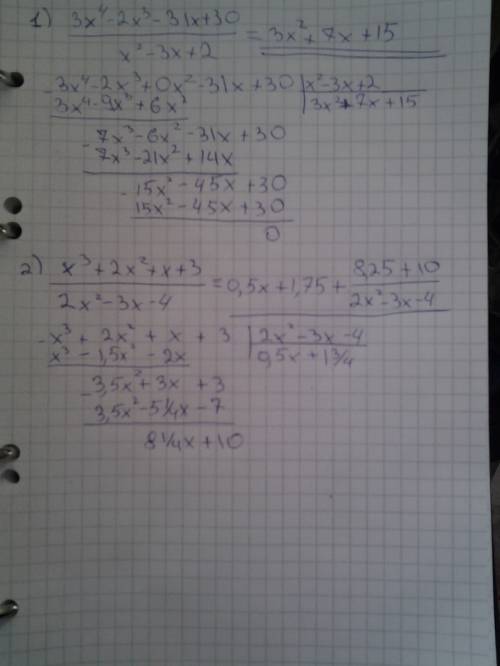 1) (3x⁴-2x³-31x+30)/(x²-3x+2) = 3x²+7x+15
-3x⁴-2x³+0x²-31x+30 | x²-3x+2
3x⁴-9x³+6x² | 3x²+7x+15
-7x³-6x²-31x+30
7x³-21x²+14x
-15x²-45x+30
15x²-45x+30
0
2) (x³+2x²+x+3)/(2x²-3x-4) = 0,5x+1,75+(8,25+10)/(2x²-3x-4)
-x³+2x²+x+3 | 2x²-3x-4
x³-1,5x²-2x | 0,5x+1 3/4
-3,5x²+3x+3
3,5x²-5 1/4x-7
8 1/4x+10